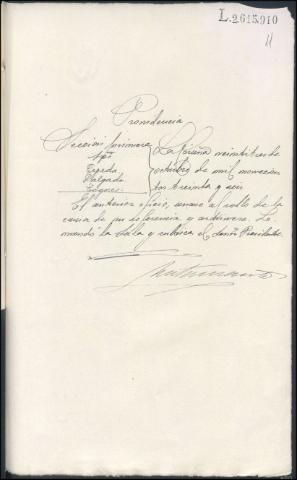 L.2615910
Providencia
Sección primera
Sres
Tejeda
Salgado
La Coruña veintitres de
octubre de mil novecien
tos treinta y seis
El anterior oficio, unase al rollo de la
causa de su referencia y archivese. Lo
mandó la Sala y rubrica el señor Presidente.